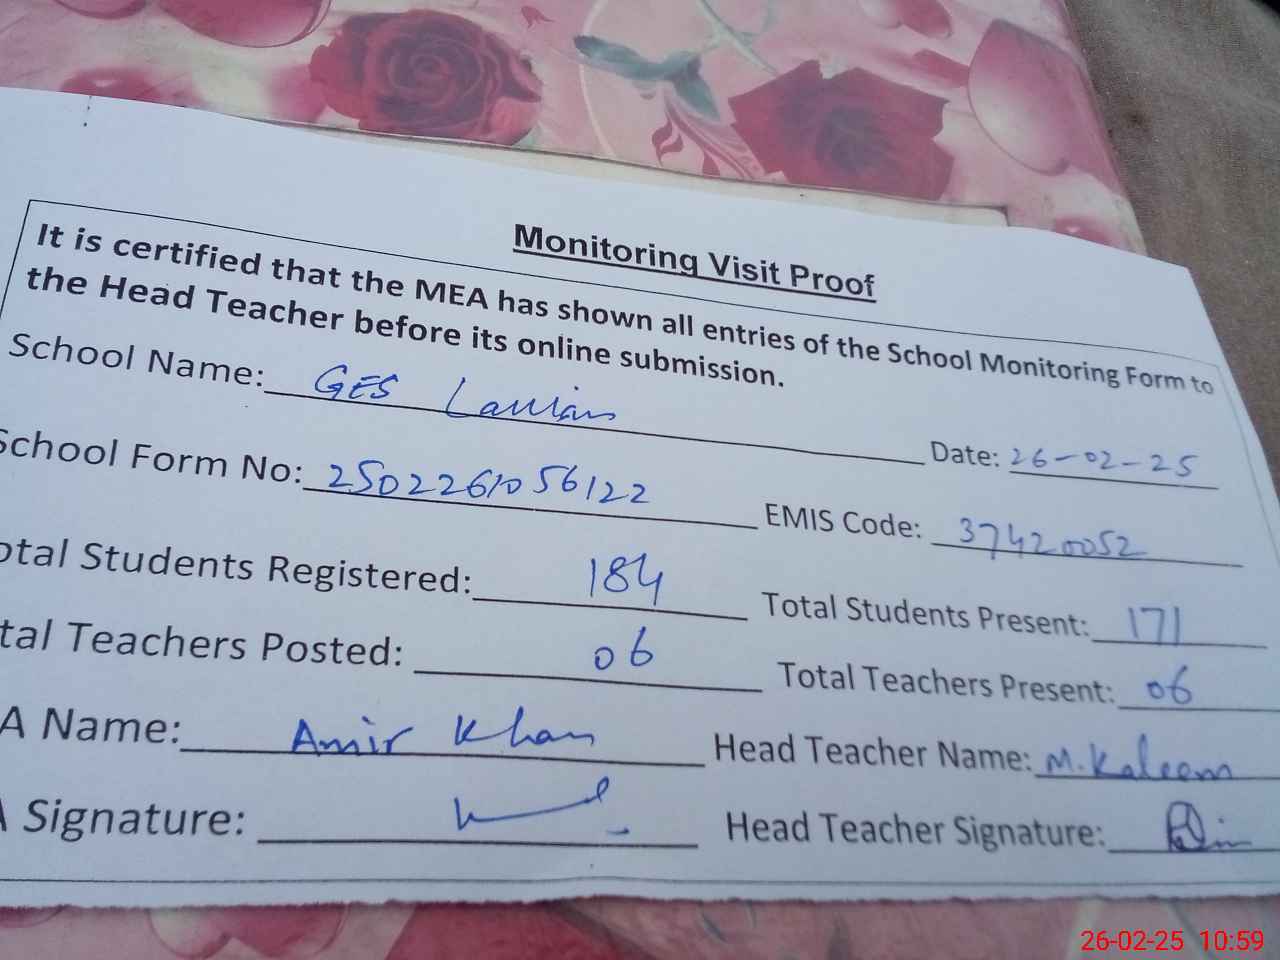 Monitoring Visit Proof
It is certified that the MEA has shown all entries of the School Monitoring Form to
the Head Teacher before its online submission.
School Name: GES
Date: 26-02-25
School Form No: 2502261056122
EMIS Code: 37420052
otal Students Registered: 184
Total Students Present: 171
tal Teachers Posted: 06
Total Teachers Present: 06
A Name: Amir Khan
Head Teacher Name: M. Kaleem
A Signature:
Head Teacher Signature:
26-02-25 10:59